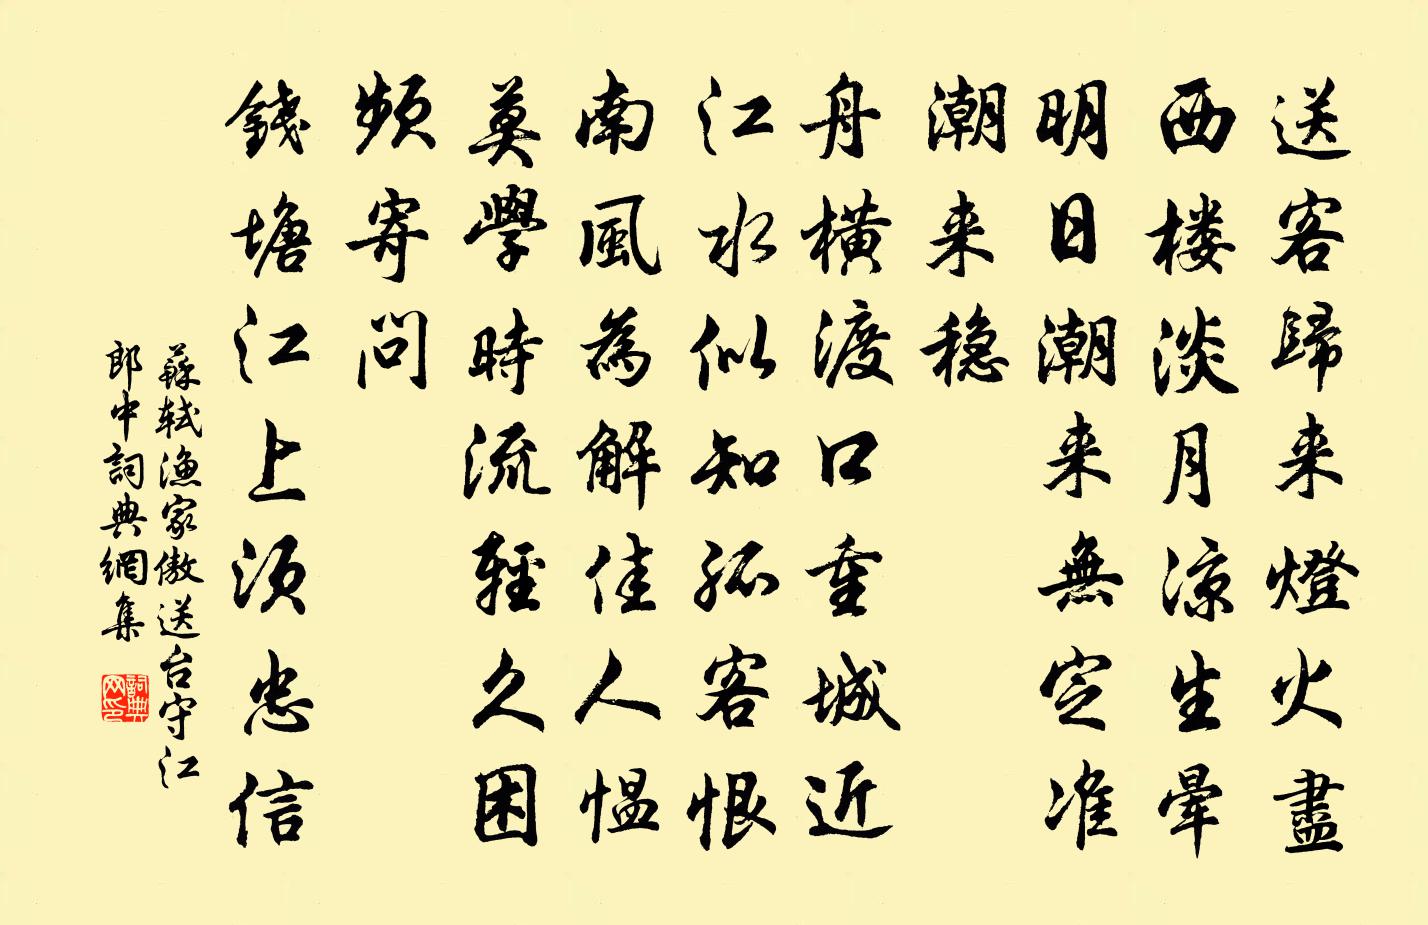 送客歸来燈火盡
西楼淡月涼生暈
明日潮来無定准
潮来穏
舟横渡口重城近
江水似知孤客恨
南風為解佳人愠
莫學時流輕久困
頻寄問
錢塘江上須忠信
蘇軾漁家傲送台守江
郎中詞典網集
詞典网印